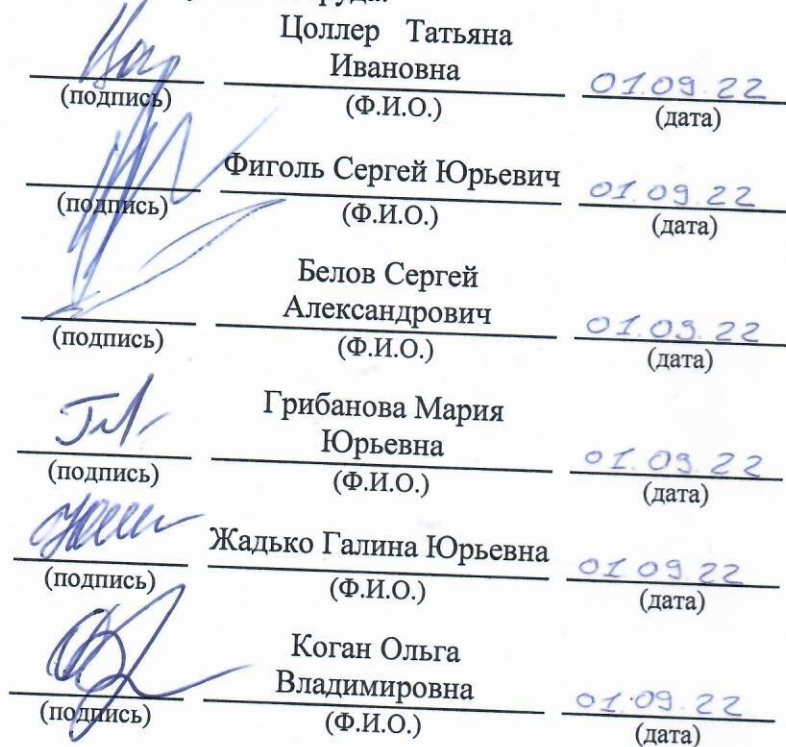 Цоллер Татьяна
Ивановна
01.09.22
(подпись) (Ф.И.О.) (дата)
Фиголь Сергей Юрьевич 01.09.22
(подпись) (Ф.И.О.) (дата)
Белов Сергей
Александрович
01.09.22
(подпись) (Ф.И.О.) (дата)
Грибанова Мария
Юрьевна
01.09.22
(подпись) (Ф.И.О.) (дата)
Жадько Галина Юрьевна 01.09.22
(подпись) (Ф.И.О.) (дата)
Коган Ольга
Владимировна
01.09.22
(подпись) (Ф.И.О.) (дата)